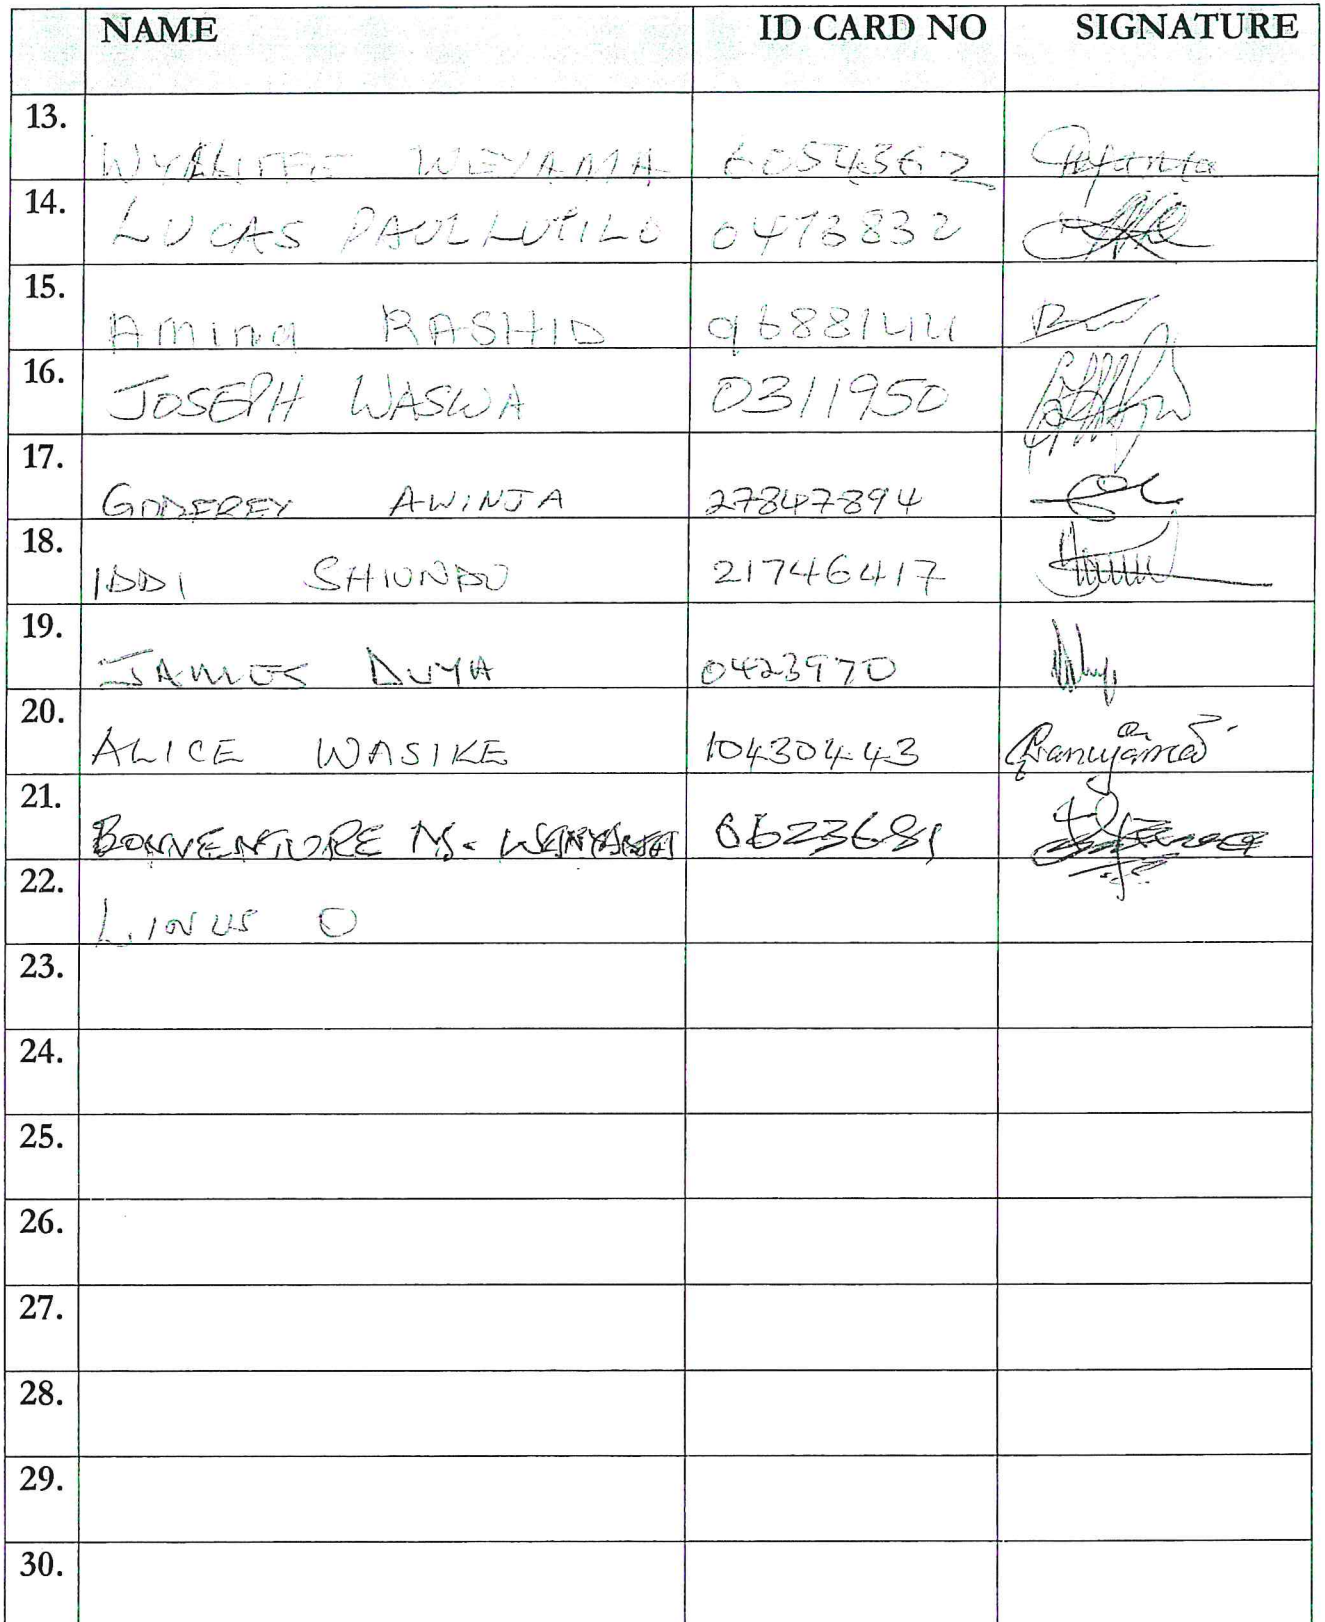 NAME ID CARD NO SIGNATURE
13. WEYAMA
14. LUCAS PAUL LUTILO 0473832
15. Amina RASHID 96881441
16. JOSEPH WASWA 0311950
17. GODFREY AWINJA 27847894
18. IDDI SHIUNDU 21746417
19. JAMES DUYA 0423970
20. ALICE WASIKE 10430443
21. BONVENTURE N. 0623681
22. LINUS O
23.
24.
25.
26.
27.
28.
29.
30.